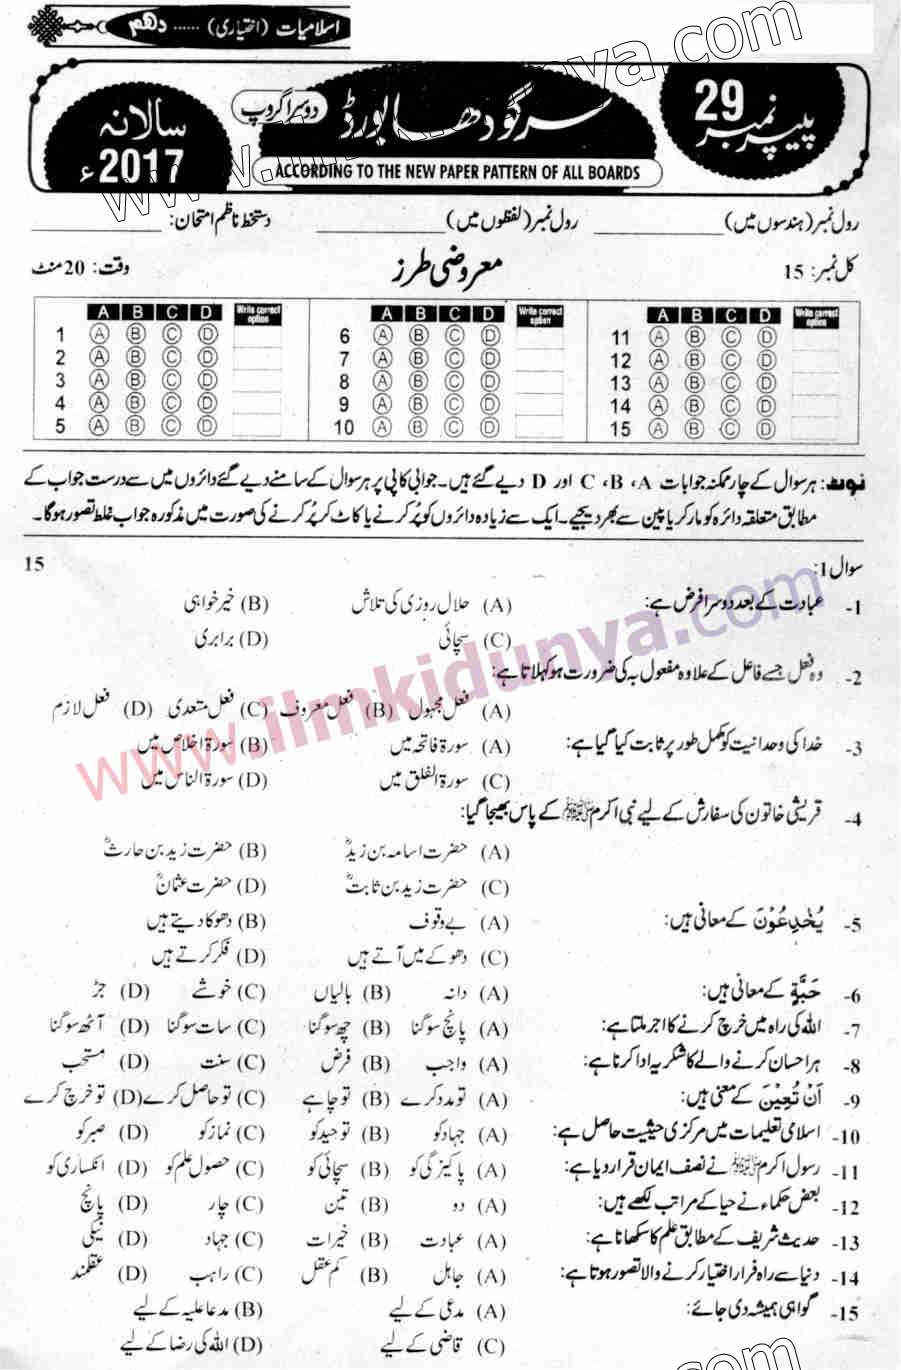 اسلامیات (اختیاری) ...... دهم
www.ilmkidunya.com
پیپر نمبر 29
سرگودھا بورڈ
دوسرا گروپ
سالانہ 2017ء
ACCORDING TO THE NEW PAPER PATTERN OF ALL BOARDS
رول نمبر (ہندسوں میں) ____________ رول نمبر (لفظوں میں) ____________ دستخط ناظم امتحان: ____________
کل نمبر: 15 معروضی طرز وقت: 20 منٹ
A B C D Write correct option A B C D Write correct option A B C D Write correct option
1 A B C D 6 A B C D 11 A B C D
2 A B C D 7 A B C D 12 A B C D
3 A B C D 8 A B C D 13 A B C D
4 A B C D 9 A B C D 14 A B C D
5 A B C D 10 A B C D 15 A B C D
نوٹ: ہر سوال کے چار ممکنہ جوابات A، B، C اور D دیے گئے ہیں۔ جوابی کاپی پر ہر سوال کے سامنے دیے گئے دائروں میں سے درست جواب کے
مطابق متعلقہ دائرہ کو مارکر یا پین سے بھر دیجیے۔ ایک سے زیادہ دائروں کو پُر کرنے یا کاٹ کر پُر کرنے کی صورت میں مذکورہ جواب غلط تصور ہوگا۔
سوال 1: 15
1- عبادت کے بعد دوسرا فرض ہے: (A) حلال روزی کی تلاش (B) خیر خواہی
(C) سچائی (D) برابری
2- وہ فعل جسے فاعل کے علاوہ مفعول بہ کی ضرورت ہو کہلاتا ہے:
(A) فعل مجہول (B) فعل معروف (C) فعل متعدی (D) فعل لازم
3- خدا کی وحدانیت کو مکمل طور پر ثابت کیا گیا ہے: (A) سورۃ فاتحہ میں (B) سورۃ اخلاص میں
(C) سورۃ الفلق میں (D) سورۃ الناس میں
4- قریشی خاتون کی سفارش کے لیے نبی اکرم ﷺ کے پاس بھیجا گیا:
(A) حضرت اسامہ بن زیدؓ (B) حضرت زید بن حارثؓ
(C) حضرت زید بن ثابتؓ (D) حضرت عثمانؓ
5- يُخٰدِعُوْنَ کے معانی ہیں: (A) بے وقوف (B) دھوکا دیتے ہیں
(C) دھوکے میں آتے ہیں (D) فکر کرتے ہیں
6- حَبَّةٍ کے معانی ہیں: (A) دانہ (B) بالیاں (C) خوشے (D) جڑ
7- اللہ کی راہ میں خرچ کرنے کا اجر ملتا ہے: (A) پانچ سو گنا (B) چھ سو گنا (C) سات سو گنا (D) آٹھ سو گنا
8- ہر احسان کرنے والے کا شکریہ ادا کرنا ہے: (A) واجب (B) فرض (C) سنت (D) مستحب
9- اَنْ تُعِيْنَ کے معنی ہیں: (A) تو مدد کرے (B) تو چاہے (C) تو حاصل کرے (D) تو خرچ کرے
10- اسلامی تعلیمات میں مرکزی حیثیت حاصل ہے: (A) جہاد کو (B) توحید کو (C) نماز کو (D) صبر کو
11- رسول اکرم ﷺ نے نصف ایمان قرار دیا ہے: (A) پاکیزگی کو (B) سچائی کو (C) حصول علم کو (D) انکساری کو
12- بعض حکماء نے حیا کے مراتب لکھے ہیں: (A) دو (B) تین (C) چار (D) پانچ
13- حدیث شریف کے مطابق علم کا سکھانا ہے: (A) عبادت (B) خیرات (C) جہاد (D) نیکی
14- دنیا سے راہ فرار اختیار کرنے والا تصور ہوتا ہے: (A) جاہل (B) کم عقل (C) راہب (D) عقلمند
15- گواہی ہمیشہ دی جائے: (A) مدعی کے لیے (B) مدعا علیہ کے لیے
(C) قاضی کے لیے (D) اللہ کی رضا کے لیے